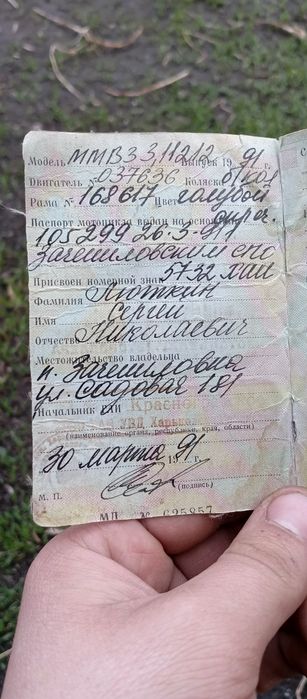 Модель ММВЗ 3,11212 Выпуск 19 91 г.
Двигатель № 037636 Коляска
Рама № 168617 Цвет голубой
Паспорт мотоцикла выдан на основании
105299 26.3-91
Зачепиловским СПС
Присвоен номерной знак 5732 ХАП
Фамилия
Имя Сергей
Отчество Николаевич
Местожительство владельца
п. Зачепиловка
ул. Садовая 181
Начальник Красног
УВД Харьк
(наименование органа, республики, края, области)
30 марта 1991 г.
М. П. (подпись)
МЛ № 625857